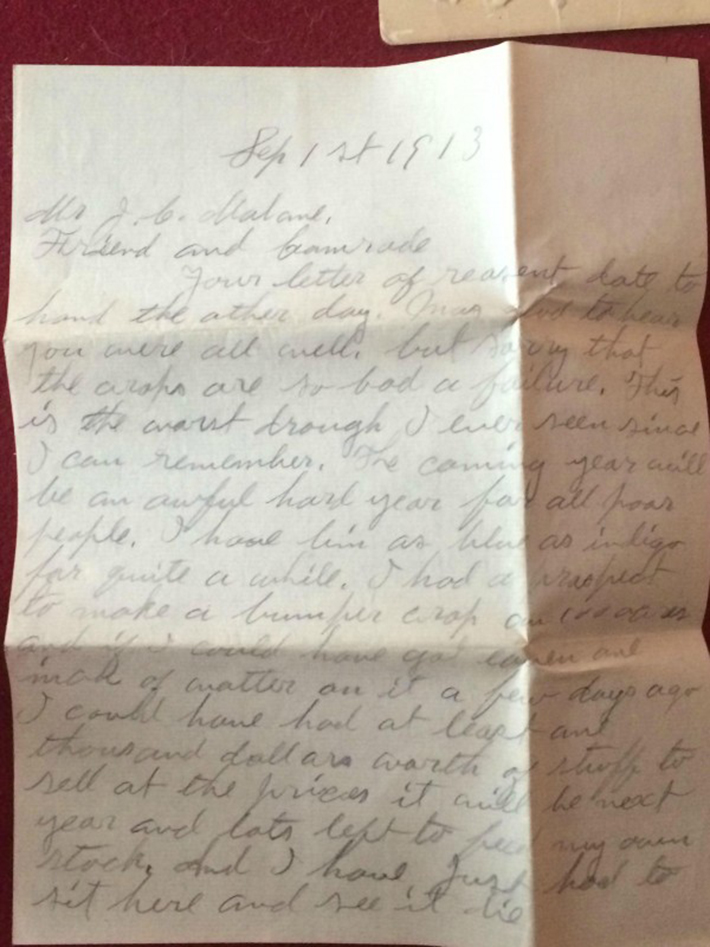 Sep 1 st 1913
Mr J. C. Malone.
Friend and Comrade
Your letter of reasent date to
hand the other day. Was glad to hear
you were all well. but sorry that
the crops are so bad a failure. This
is the worst drough I ever seen since
I can remember. The coming year will
be an awful hard year for all poor
people. I have bin as blue as indigo
for quite a while. I had a prospect
to make a bumper crop on
and if I could have got even one
inch of watter on it a few days ago
I could have had at least one
thousand dollars worth of stuff to
sell at the prizes it will be next
year and lots left to feed my own
stock. And I have just had to
sit here and see it die